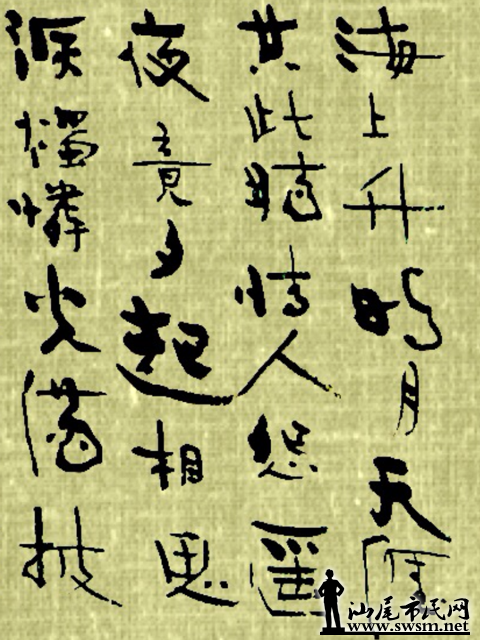 海上升明月天涯
共此時情人怨遥
夜竟夕起相思
滅燭憐光滿披
汕尾市民网
www.swsm.net